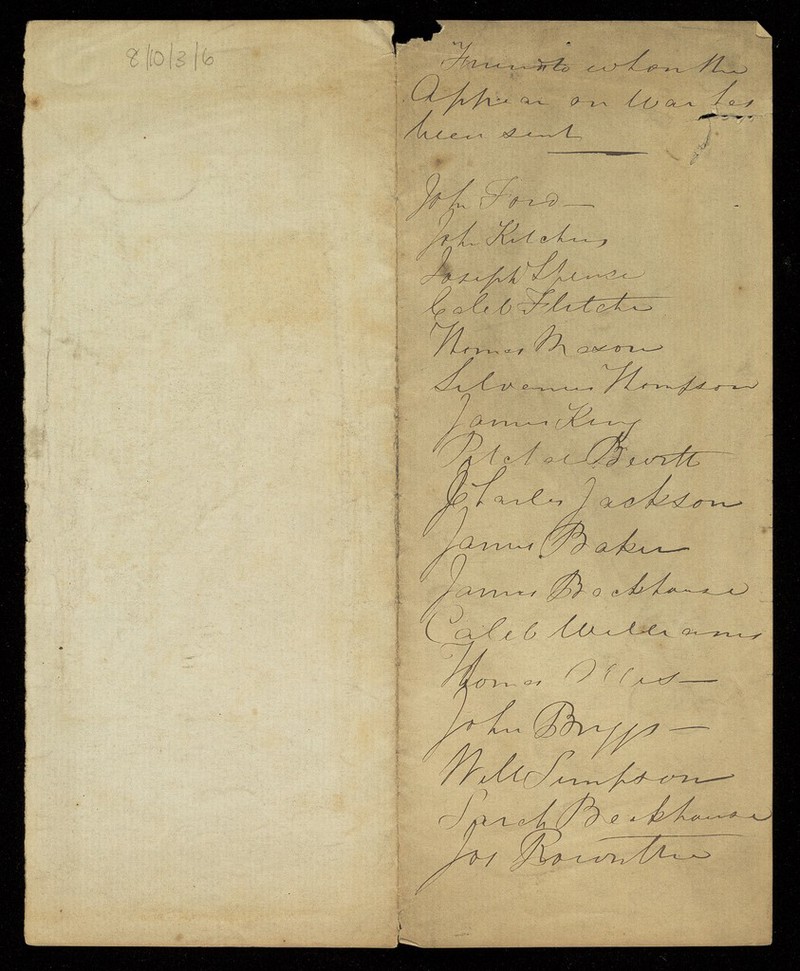 8/10/3/6
Friends to whom the
Appear on War has
been sent
John Ford
John Kitching
Joseph Spence
Caleb Fletcher
Thomas Mason
Silvanus Thompson
James King
Bewitt
Charles Jackson
James Baker
James Backhouse
Caleb Williams
Thomas
John Briggs
Will Simpson
Sarah Backhouse
Jos Rowntree